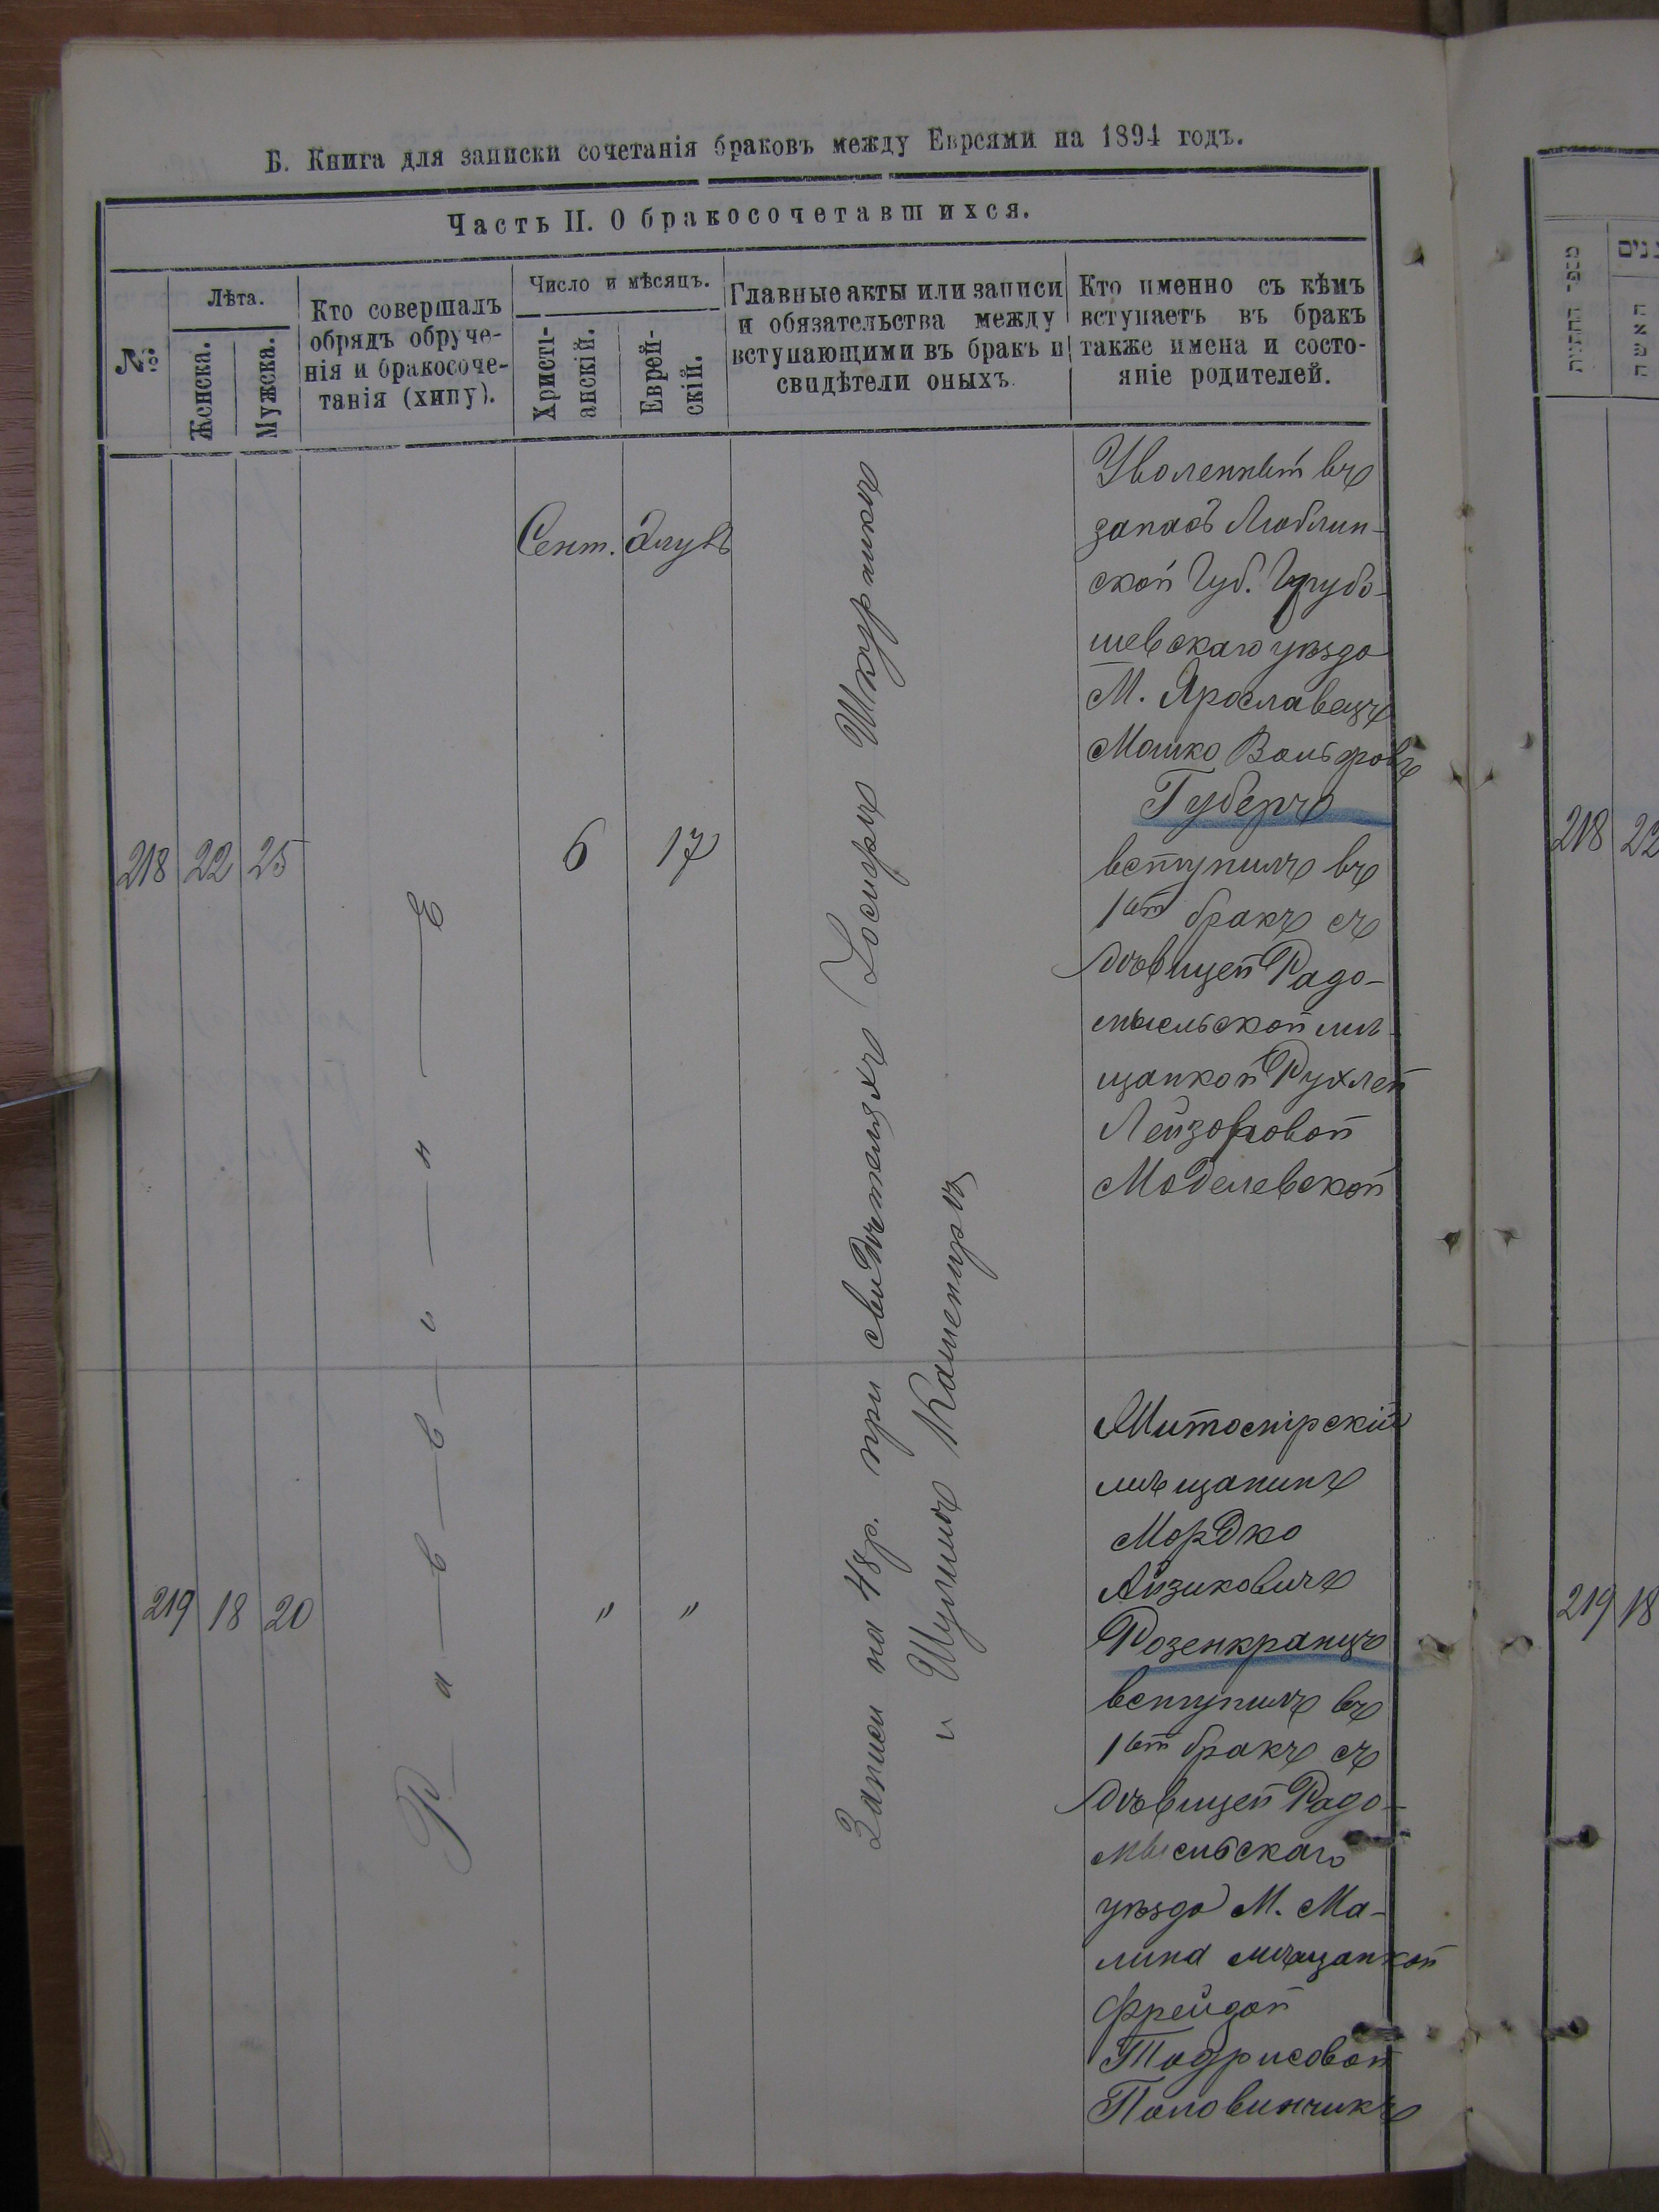 Б. Книга для записки сочетанія браковъ между Евреями на 1894 годъ.
Часть II. О бракосочетавшихся.
№
Лѣта.
Женска.
Мужска.
Кто совершалъ
обрядъ обруче-
нія и бракосоче-
танія (хипу).
Число и мѣсяцъ.
Христі-
анскій.
Еврей-
скій.
Главные акты или записи
и обязательства между
вступающими въ бракъ и
свидѣтели оныхъ.
Кто именно съ кѣмъ
вступаетъ въ бракъ
также имена и состо-
яніе родителей.
Сент. Элулъ
218 22 25
6 17
Р—а—в—в—и—н—Ъ
Записи на 48 р. при свидѣтеляхъ Іосифѣ Шкурникѣ
и Шулимѣ Каменирѣ
Уволенный въ
запасъ Люблин-
ской Губ. Грубе-
шевскаго уѣзда
М. Ярославецъ
Мошко Вольфовъ
Губеръ
вступилъ въ
1ый бракъ съ
дѣвицей Радо-
мысльской мѣ-
щанкой Рухлей
Лейзоровой
Моделевской
219 18 20
" "
Житомірскій
мѣщанинъ
Мордко
Айзиковичъ
Розенкранцъ
вступилъ въ
1ый бракъ съ
дѣвицей Радо-
мысльскаго
уѣзда М. Ма-
лина мѣщанкой
Фрейдой
Тодрисовой
Половинчикъ
218 22
219 18
האשה